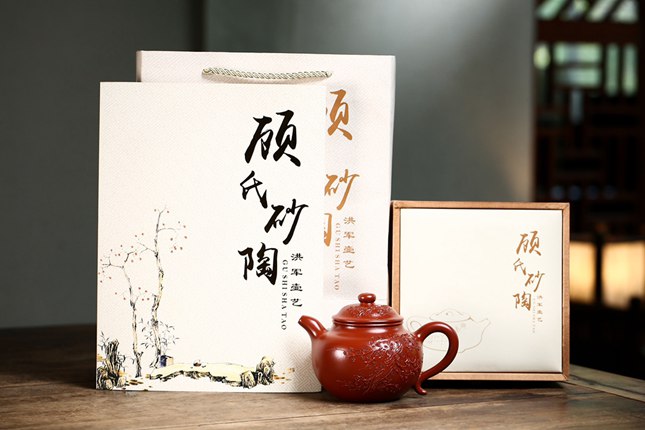 顾氏砂陶
洪军壶艺
GU SHI SHA TAO
顾 砂陶
洪军壶艺
GU SHI SHA TAO
顾氏砂陶
洪军壶艺